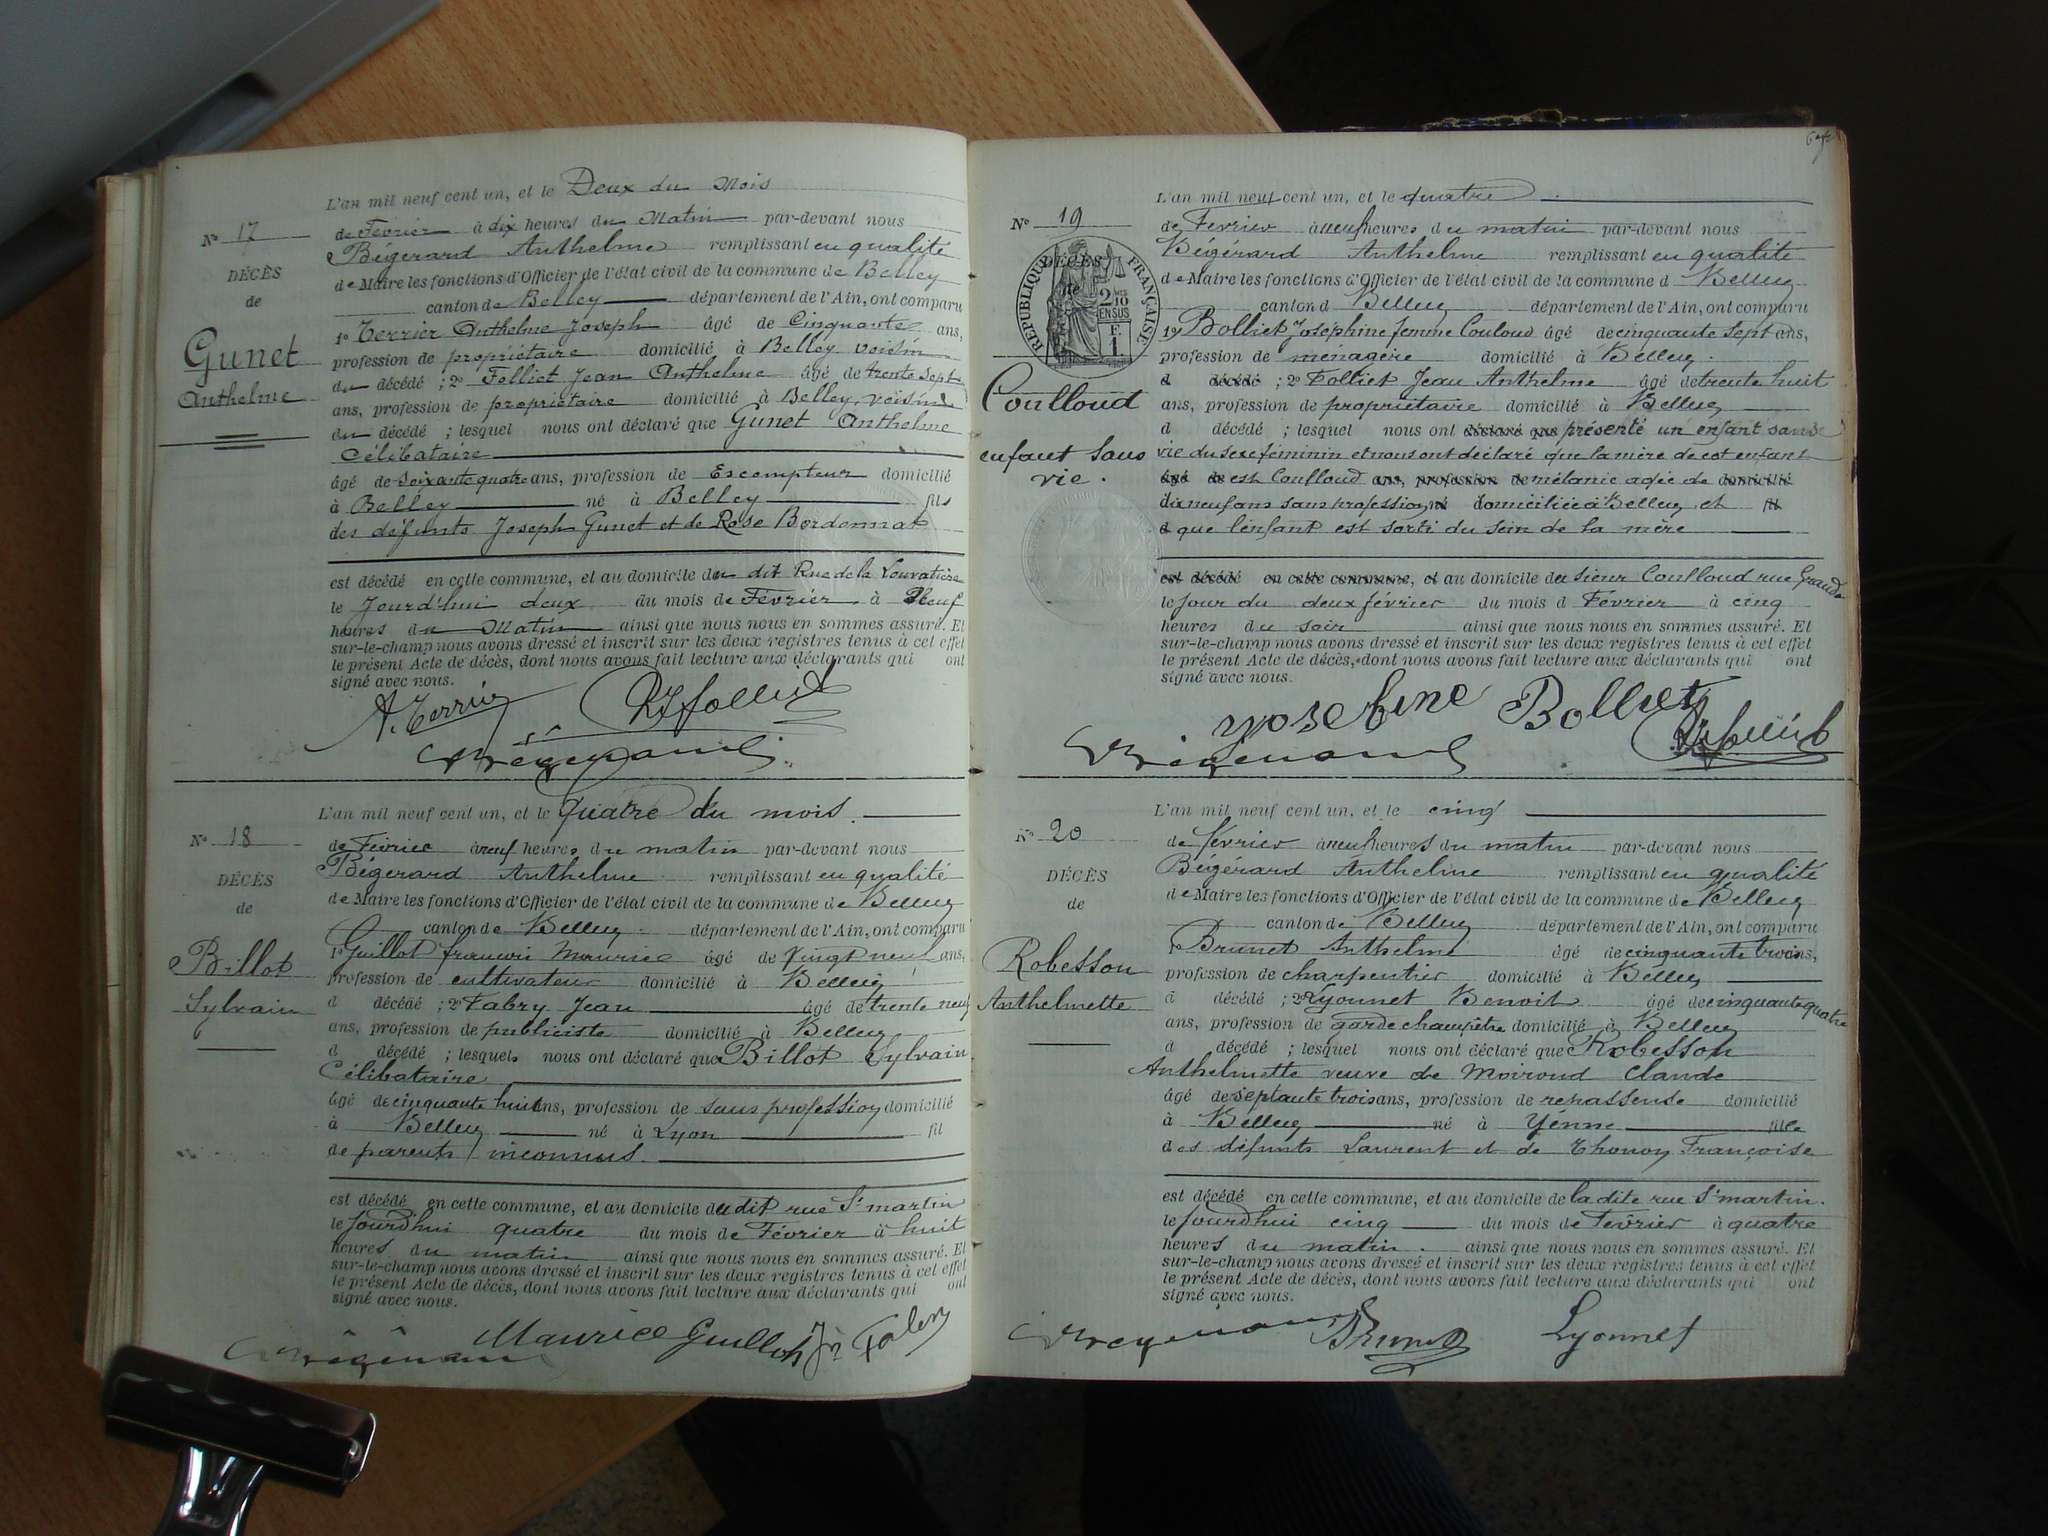 L'an mil neuf cent un, et le Deux du Mois
N° 17
de Février à dix heures du Matin par-devant nous
Bégérard Anthelme remplissant en qualité
DÉCÈS
de Maire les fonctions d'Officier de l'état civil de la commune de Belley
de
canton de Belley département de l'Ain, ont comparu
Gunet
1° Terrier Anthelme Joseph âgé de Cinquante ans,
profession de propriétaire domicilié à Belley voisin
Anthelme
du décédé ; 2° Folliet Jean Anthelme âgé de trente sept
ans, profession de propriétaire domicilié à Belley, voisin
du décédé ; lesquel nous ont déclaré que Gunet Anthelme
Célibataire
âgé de soixante quatre ans, profession de Escompteur domicilié
à Belley né à Belley fils
des défunts Joseph Gunet et de Rose Bordonnat
est décédé en cette commune, et au domicile du dit Rue de la Louvatière
le Jourd'hui deux du mois de Février à Neuf
heures du Matin ainsi que nous nous en sommes assuré. Et
sur-le-champ nous avons dressé et inscrit sur les deux registres tenus à cet effet
le présent Acte de décès, dont nous avons fait lecture aux déclarants qui ont
signé avec nous.
A. Terrier
L'an mil neuf cent un, et le Quatre du mois.
N° 18
de Février à neuf heures du matin par-devant nous
Bégerard Anthelme remplissant en qualité
DÉCÈS
de Maire les fonctions d'Officier de l'état civil de la commune de Belley
de
canton de Belley département de l'Ain, ont comparu
Billot
1° Guillot françois Maurice âgé de Vingt neuf ans,
profession de cultivateur domicilié à Belley
Sylvain
d décédé ; 2° Fabry Jean âgé de trente neuf
ans, profession de publiciste domicilié à Belley
d décédé ; lesquels nous ont déclaré que Billot Sylvain
Célibataire
âgé de cinquante huit ans, profession de sans profession domicilié
à Belley né à Lyon fil
de parents inconnus.
est décédé en cette commune, et au domicile du dit rue St martin
le Jourd'hui quatre du mois de Février à huit
heures du matin ainsi que nous nous en sommes assuré. Et
sur-le-champ nous avons dressé et inscrit sur les deux registres tenus à cet effet
le présent Acte de décès, dont nous avons fait lecture aux déclarants qui ont
signé avec nous.
Maurice Guillot Jn Fabry
L'an mil neuf cent un, et le quatre
N° 19
de Février à neuf heures du matin par-devant nous
Bégérard Anthelme remplissant en qualité
DÉCÈS
de
RÉPUBLIQUE FRANÇAISE
2 10
EN SUS
F.
1
de Maire les fonctions d'Officier de l'état civil de la commune d Belley
canton d Belley département de l'Ain, ont comparu
1° Bolliet Joséphine femme Couloud âgé de cinquante sept ans,
profession de ménagère domicilié à Belley.
Coulloud
d décédé ; 2° Folliet Jean Anthelme âgé de trente huit
ans, profession de propriétaire domicilié à Belley
d décédé ; lesquel nous ont déclaré que présenté un enfant sans
enfant sans
vie du sexe féminin et nous ont déclaré que la mère de cet enfant
vie.
âgé de est Coulloud ans, profession de mélanie agée de domicilié
dix neuf ans sans profession né domiciliée à Belley et fil
d que l'enfant est sorti du sein de la mère
est décédé en cette commune, et au domicile du sieur Coulloud rue Grande
le Jour du deux février du mois d Février à cinq
heures du soir ainsi que nous nous en sommes assuré. Et
sur-le-champ nous avons dressé et inscrit sur les deux registres tenus à cet effet
le présent Acte de décès, dont nous avons fait lecture aux déclarants qui ont
signé avec nous.
Bolliet
L'an mil neuf cent un, et le cinq
N° 20
de février à neuf heures du matin par-devant nous
Bégérard Anthelme remplissant en qualité
DÉCÈS
de Maire les fonctions d'Officier de l'état civil de la commune de Belley
de
canton de Belley département de l'Ain, ont comparu
Robesson
1° Brunet Anthelme âgé de cinquante trois ans,
profession de charpentier domicilié à Belley
Anthelmette
d décédé ; 2° Lyonnet Benoit âgé de cinquante quatre
ans, profession de garde champêtre domicilié à Belley
d décédé ; lesquel nous ont déclaré que Robesson
Anthelmette veuve de Moiroud Claude
âgé de septante trois ans, profession de repasseuse domicilié
à Belley né à Yenne fille
des défunts Laurent et de Thonoy Françoise
est décédé en cette commune, et au domicile de la dite rue St martin.
le Jourd'hui cinq du mois de Février à quatre
heures du matin. ainsi que nous nous en sommes assuré. Et
sur-le-champ nous avons dressé et inscrit sur les deux registres tenus à cet effet
le présent Acte de décès, dont nous avons fait lecture aux déclarants qui ont
signé avec nous.
Brunet Lyonnet